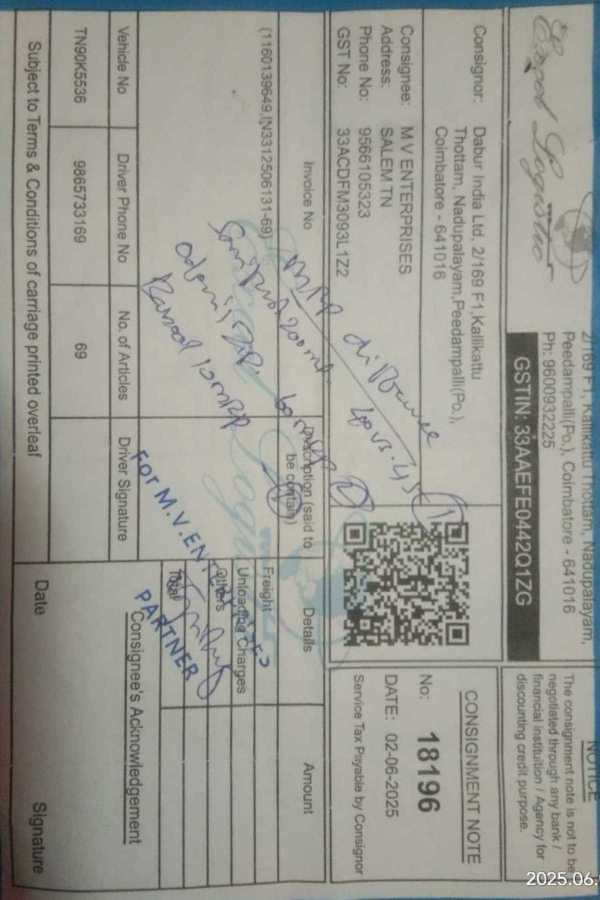 Logistics
2/169 F1, Kallikattu Thottam, Nadupalayam,
Peedampalli(Po.), Coimbatore - 641016
Ph: 9600932225
GSTIN: 33AAEFE0442Q1ZG
NOTICE
The consignment note is not to be
negotiated through any bank /
financial instituition / Agency for
discounting credit purpose.
Consignor: Dabur India Ltd, 2/169 F1,Kallikattu
Thottam, Nadupalayam,Peedampalli(Po.),
Coimbatore - 641016
Consignee: M V ENTERPRISES
Address: SALEM TN
Phone No: 9566105323
GST No: 33ACDFM3093L1Z2
CONSIGNMENT NOTE
No: 18196
DATE: 02-06-2025
Service Tax Payable by Consignor
Invoice No
Description (said to
be contain)
Details
Amount
(1160139649,IN3312506131-69)
MRP difference
40 vs. 45 (1)
200ml.
10 MRP
Freight
Unloading Charges
Others
Total
Vehicle No
Driver Phone No
No. of Articles
Driver Signature
TN90K5536
9865733169
69
FOR M.V.ENTERPRISES
PARTNER
Consignee's Acknowledgement
Subject to Terms & Conditions of carriage printed overleaf
Date
Signature
2025.06.